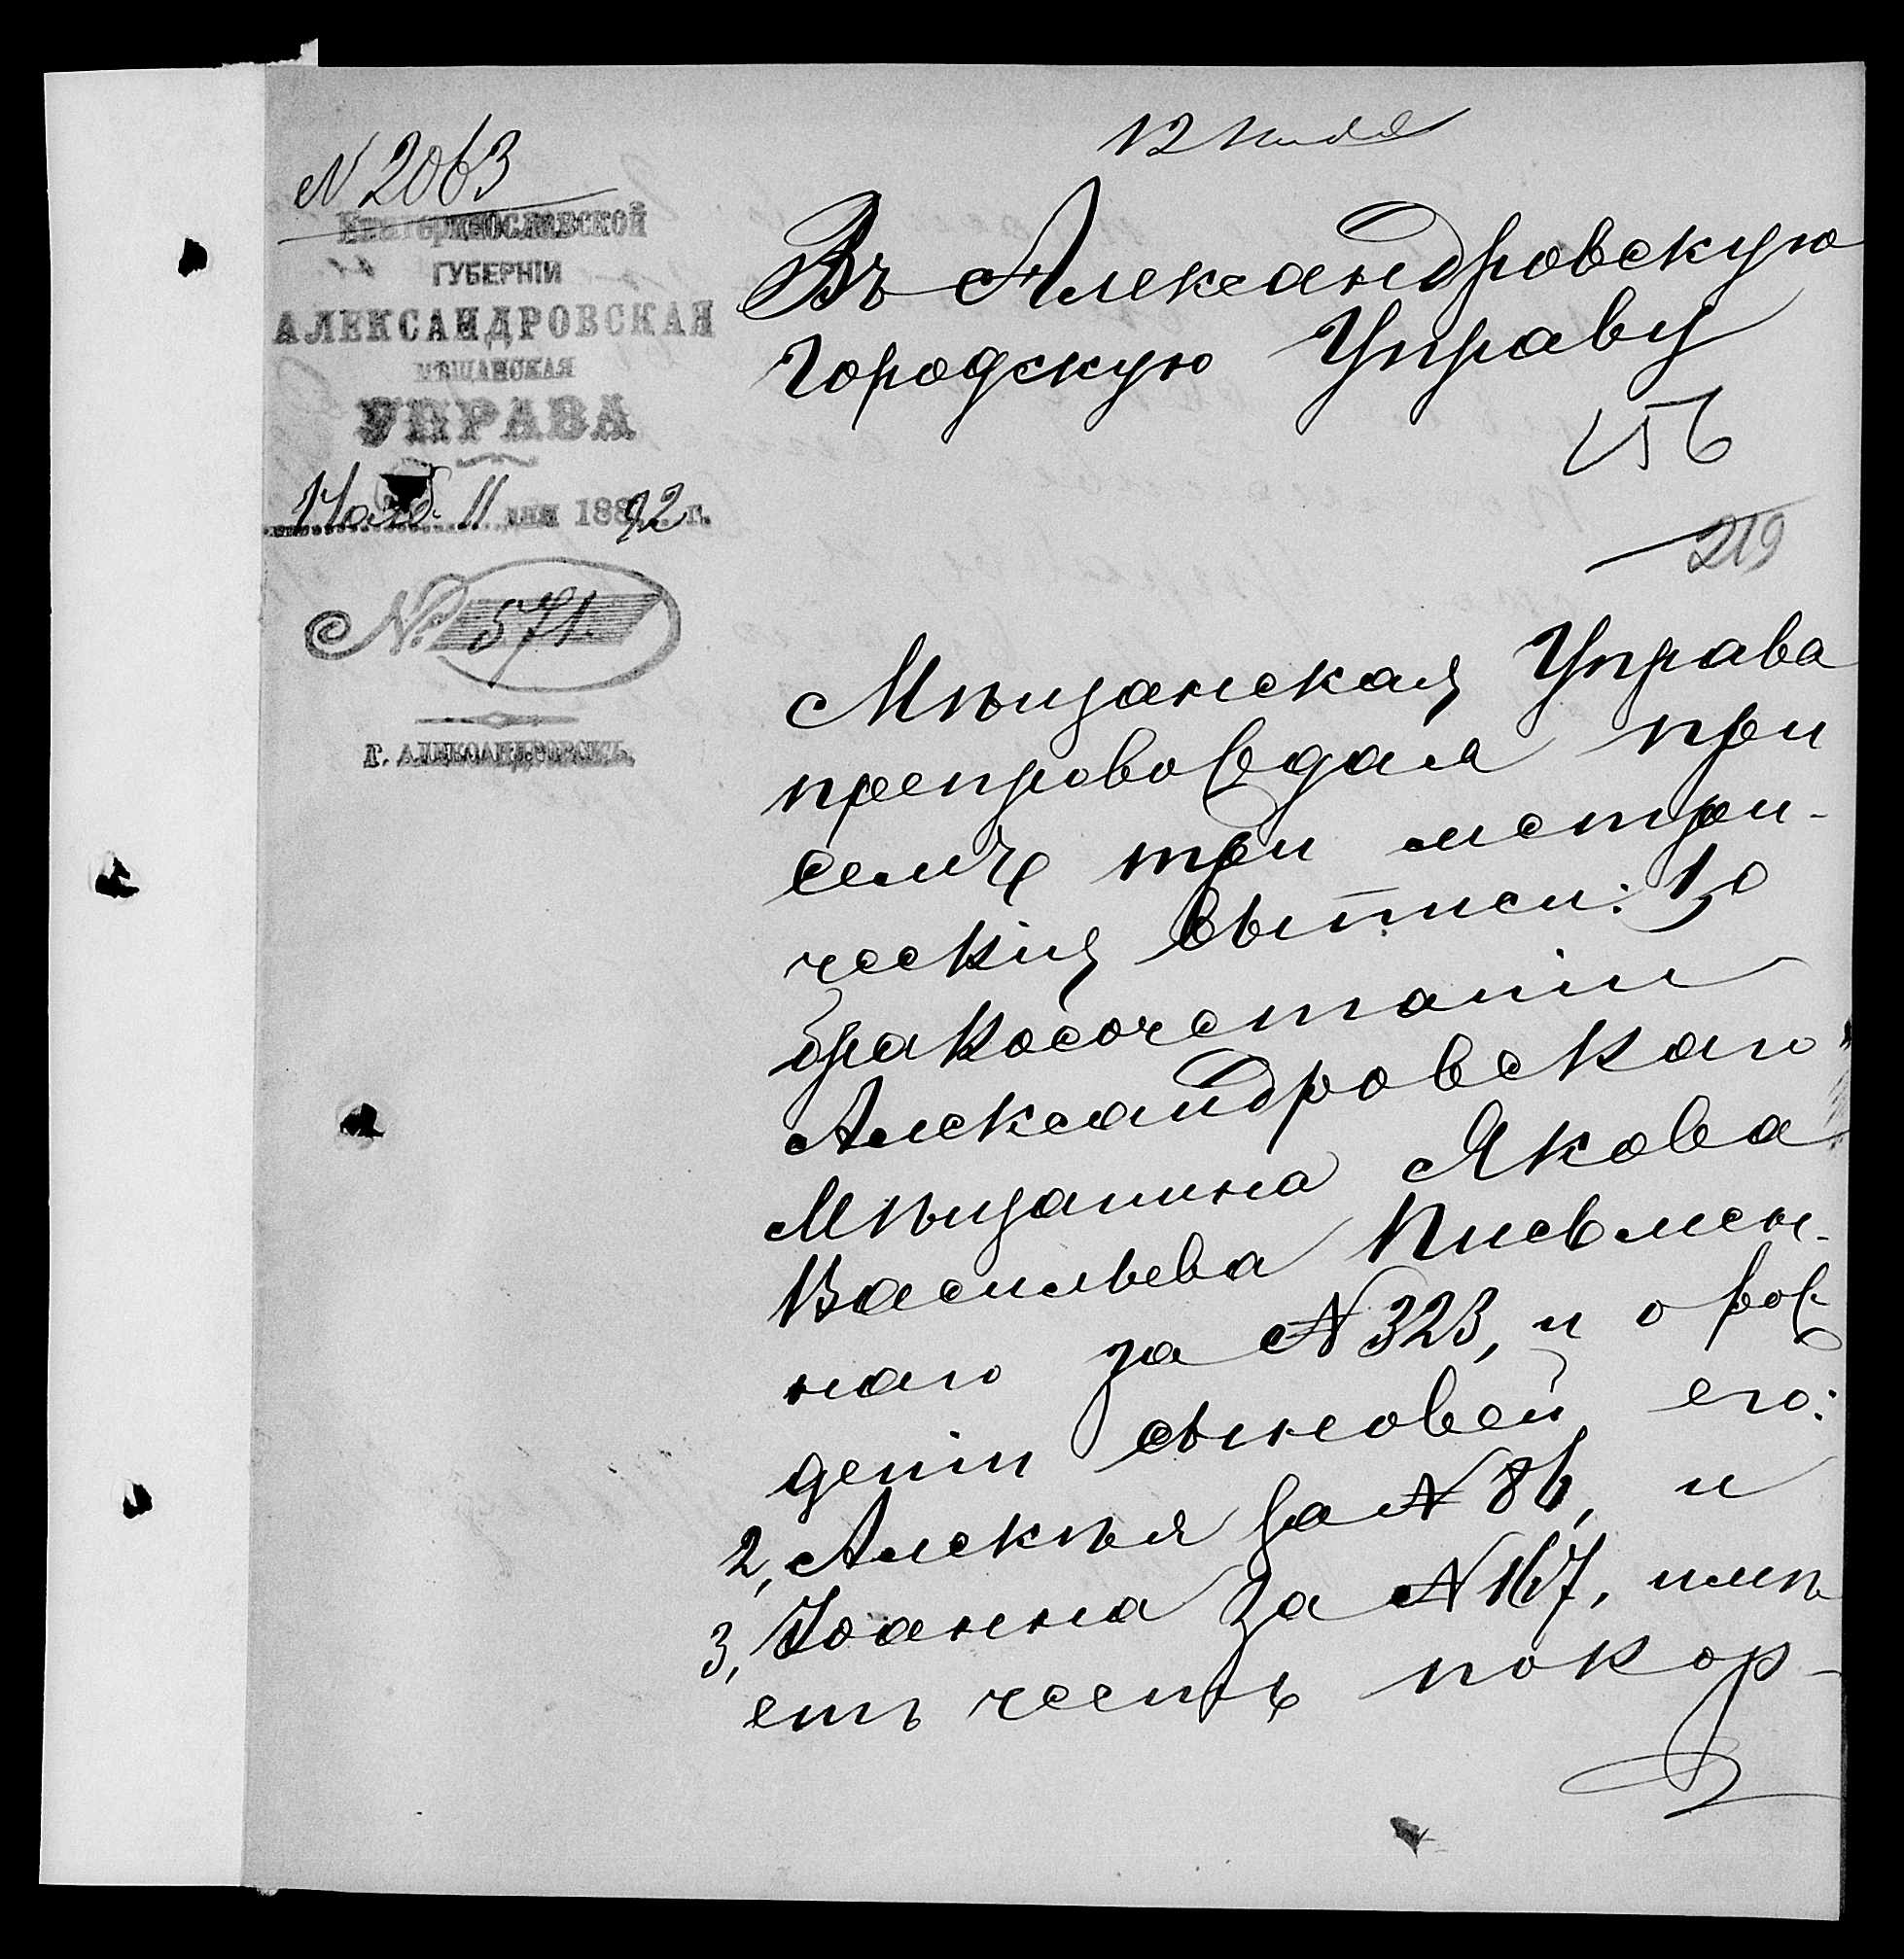 N 2063
ЕКАТЕРИНОСЛАВСКОЙ
ГУБЕРНІИ
АЛЕКСАНДРОВСКАЯ
МѢЩАНСКАЯ
УПРАВА
11 дня 1892 г.
№ 571.
Г. АЛЕКСАНДРОВСКЪ.
12
Въ Александровскую
Городскую Управу
156
219
Мѣщанская Управа
препровождая при
семъ три метри-
ческія выписи: 1, о
бракосочетаніи
Александровскаго
Мѣщанина Якова
Васильева Письмен-
наго за N 323, и о рож-
деніи сыновей его:
2, Алексѣя за N 86, и
3, Іоанна за N 167, имѣ
етъ честь покор-